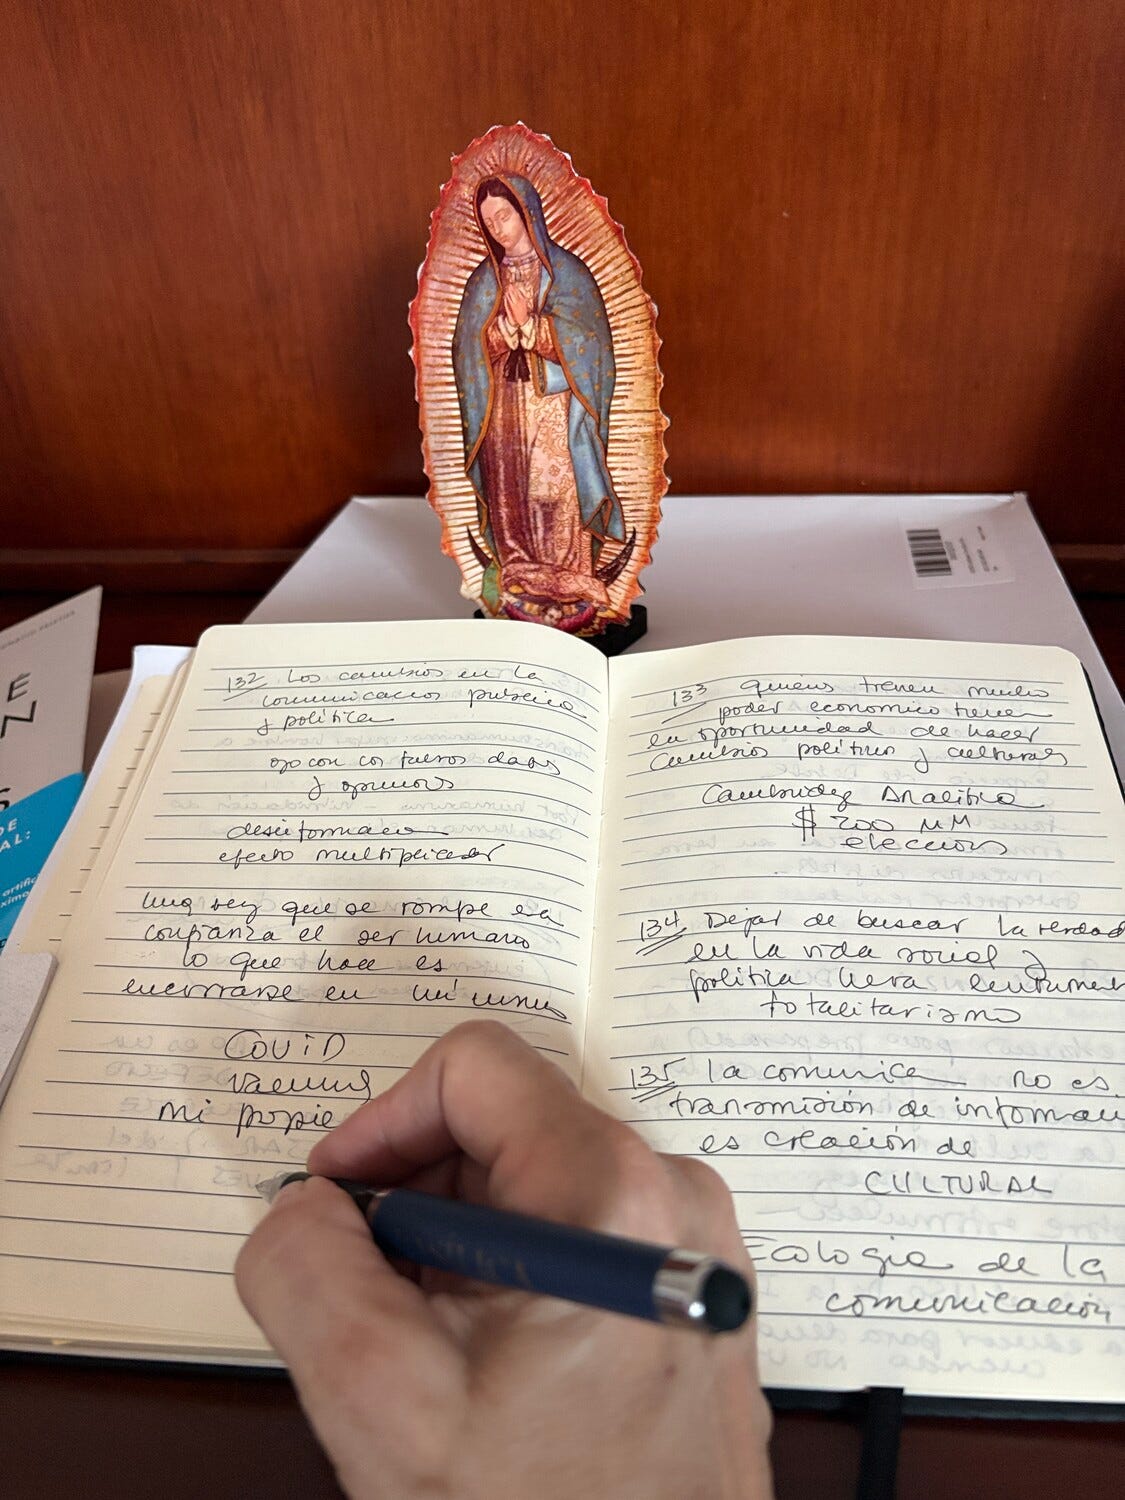 132 Los cambios en la
comunicación pública
y política
ojo con los falsos datos
y opiniones
desinformac
efecto multiplicador
Una vez que se rompe esa
confianza el ser humano
lo que hace es
encerrarse en mí mismo
COVID
vacuna
mi propie
133 quienes tienen mucho
poder económico tienen
en oportunidad de hacer
Cambios políticos y culturales
Cambridge Analitica
$ 200 MM
elecciones
134 Dejar de buscar la verdad
en la vida social y
política lleva lentament
totalitarismo
135 la comunica no es
transmisión de informaci
es creación de
CULTURAL
Ecologia de la
comunicación
E
N
S
DE
AL:
artific
ximo